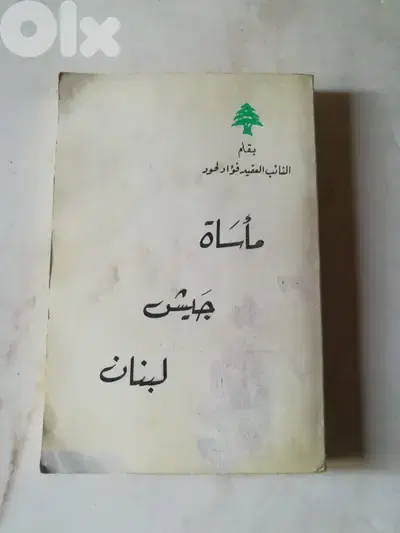 OLX
بقلم
النائب العقيد فؤاد لحود
مأسَاة
جَيش
لبنان